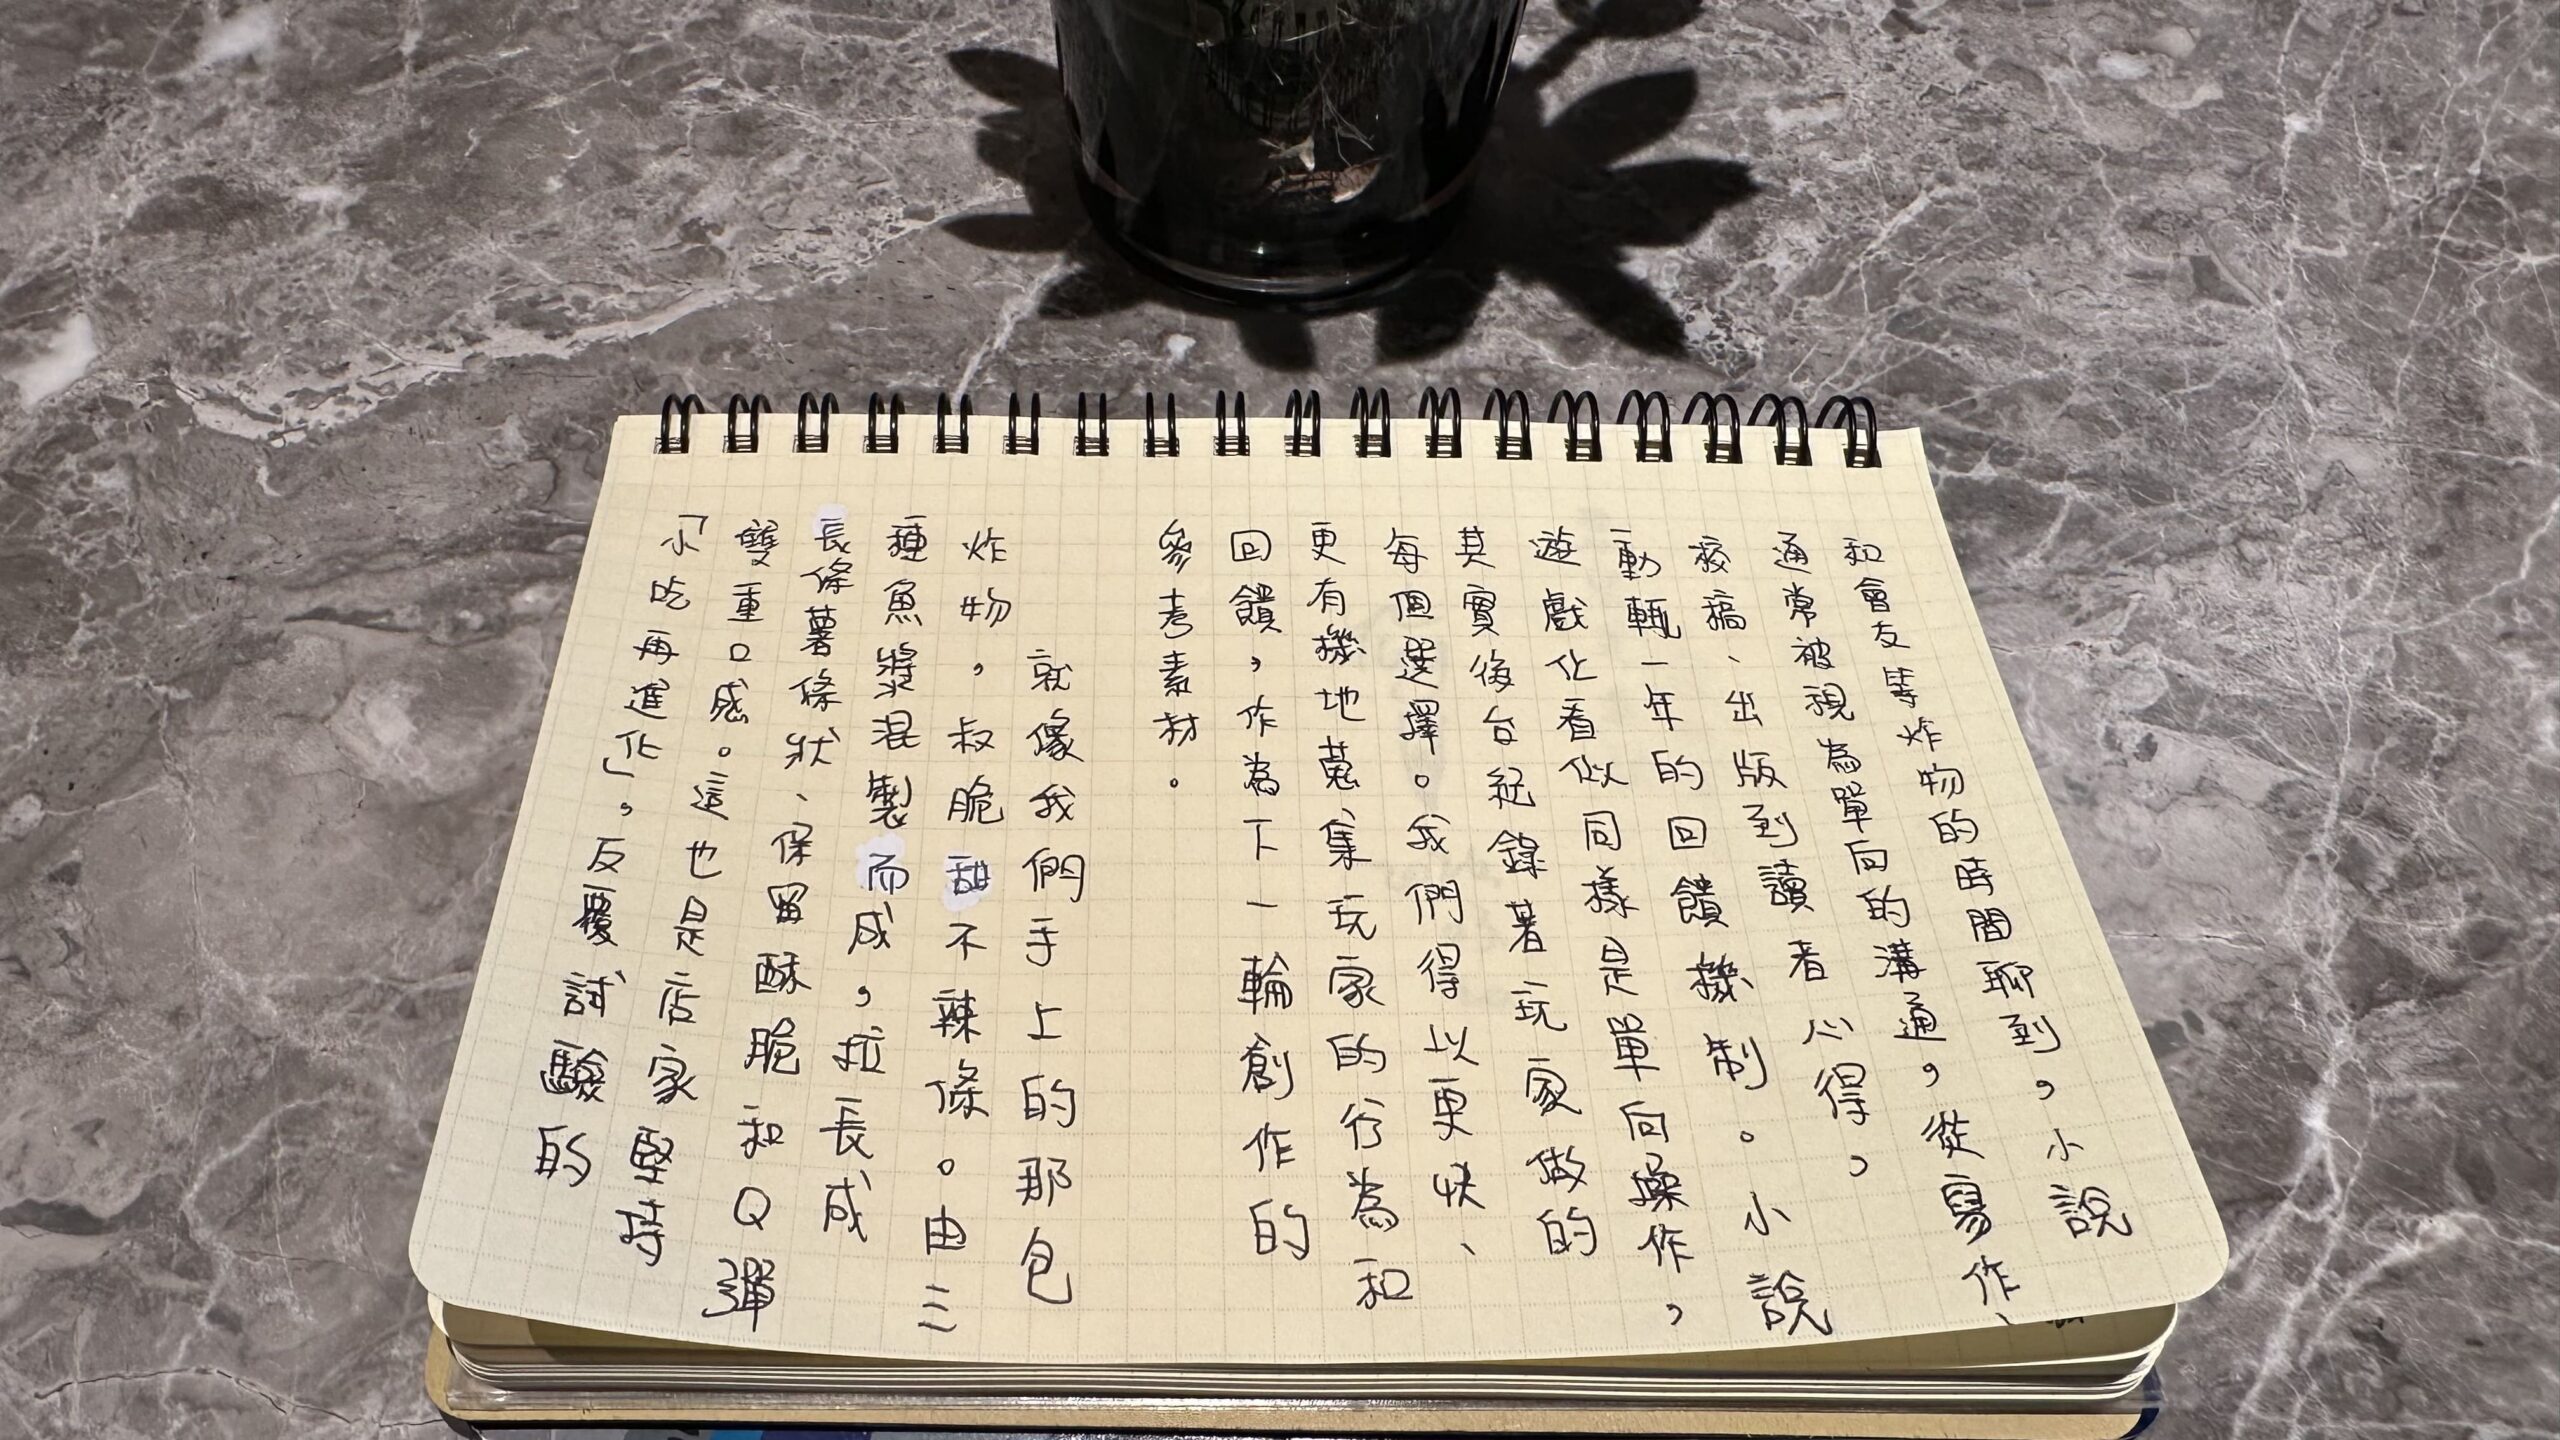 和會友等炸物的時間聊到，小說
通常被視為單向的溝通，從寫作、
校稿、出版到讀者心得，
動輒一年的回饋機制。小說
遊戲化看似同樣是單向操作，
其實後台紀錄著玩家做的
每個選擇。我們得以更快、
更有機地蒐集玩家的行為和
回饋，作為下一輪創作的
參考素材。
就像我們手上的那包
炸物，叔脆甜不辣條。由三
種魚漿混製而成，拉長成
長條薯條狀、保留酥脆和Q彈
雙重口感。這也是店家堅持
「小吃再進化」，反覆試驗的